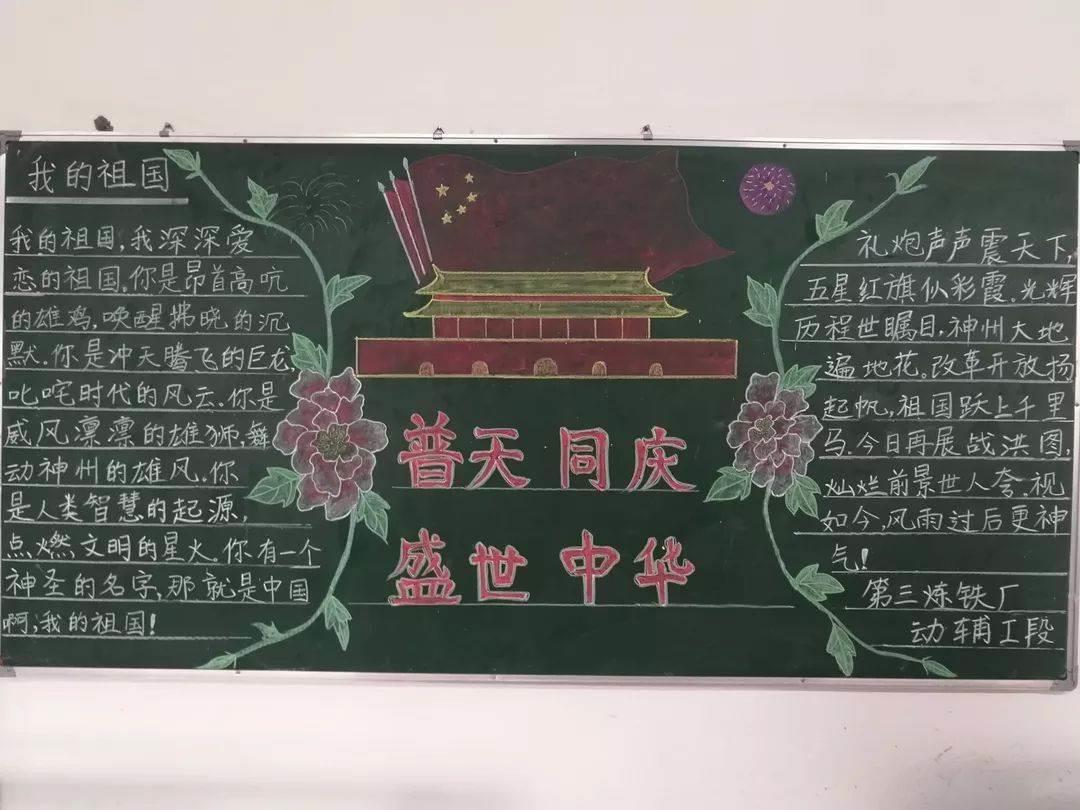 我的祖国
我的祖国,我深深爱
恋的祖国,你是昂首高吭
的雄鸡,唤醒拂晓的沉
默.你是冲天腾飞的巨龙,
叱咤时代的风云.你是
威风凛凛的雄狮,舞
动神州的雄风.你
是人类智慧的起源,
点燃文明的星火.你有一个
神圣的名字,那就是中国
啊,我的祖国!
普天同庆
盛世中华
礼炮声声震天下,
五星红旗似彩霞.光辉
历程世瞩目,神州大地
遍地花.改革开放扬
起帆,祖国跃上千里
马.今日再展战洪图,
灿烂前景世人夸.视
如今,风雨过后更神
气!
第三炼铁厂
动辅工段